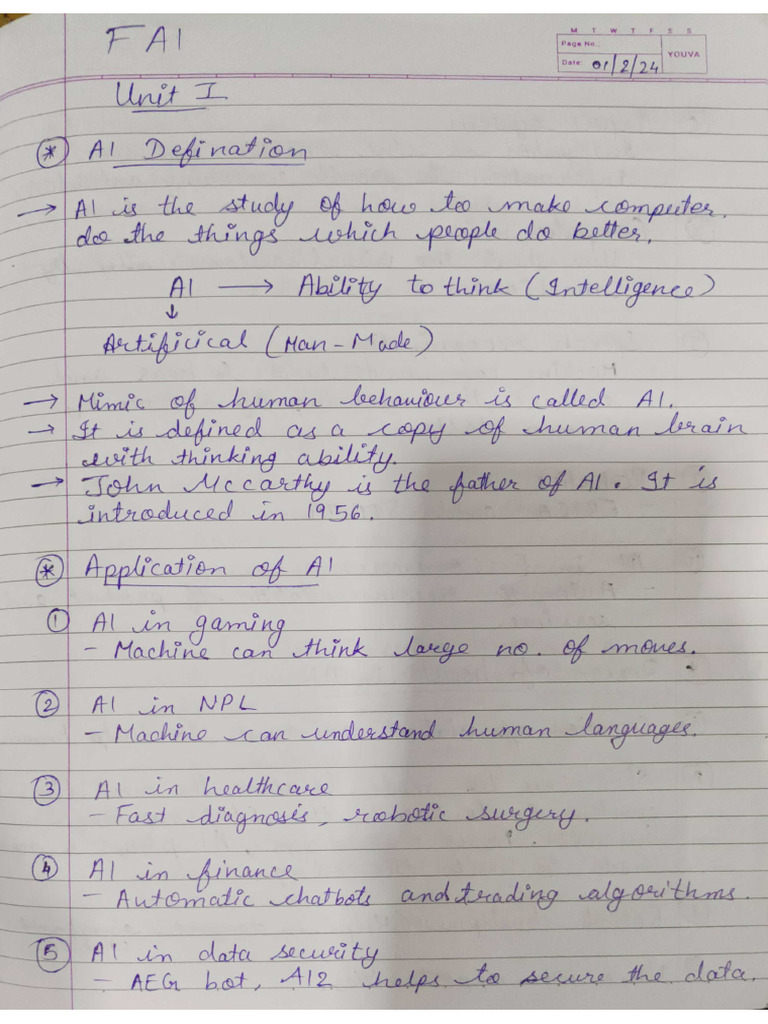 FAI
M T W T F S S
Page No.:
YOUVA
Date: 01/2/24
Unit I
* AI Defination
→ AI is the study of how to make computer
do the things which people do better.
AI → Ability to think (Intelligence)
↓
Artificical (Man-Made)
→ Mimic of human behaviour is called AI.
→ It is defined as a copy of human brain
with thinking ability.
→ John Mccarthy is the father of AI. It is
introduced in 1956.
* Application of AI
1 AI in gaming
- Machine can think large no. of moves.
2 AI in NPL
- Machine can understand human languages.
3 AI in healthcare
- Fast diagnosis, robotic surgery.
4 AI in finance
- Automatic chatbots and trading algorithms.
5 AI in data security
- AEG bot, AI2 helps to secure the data.